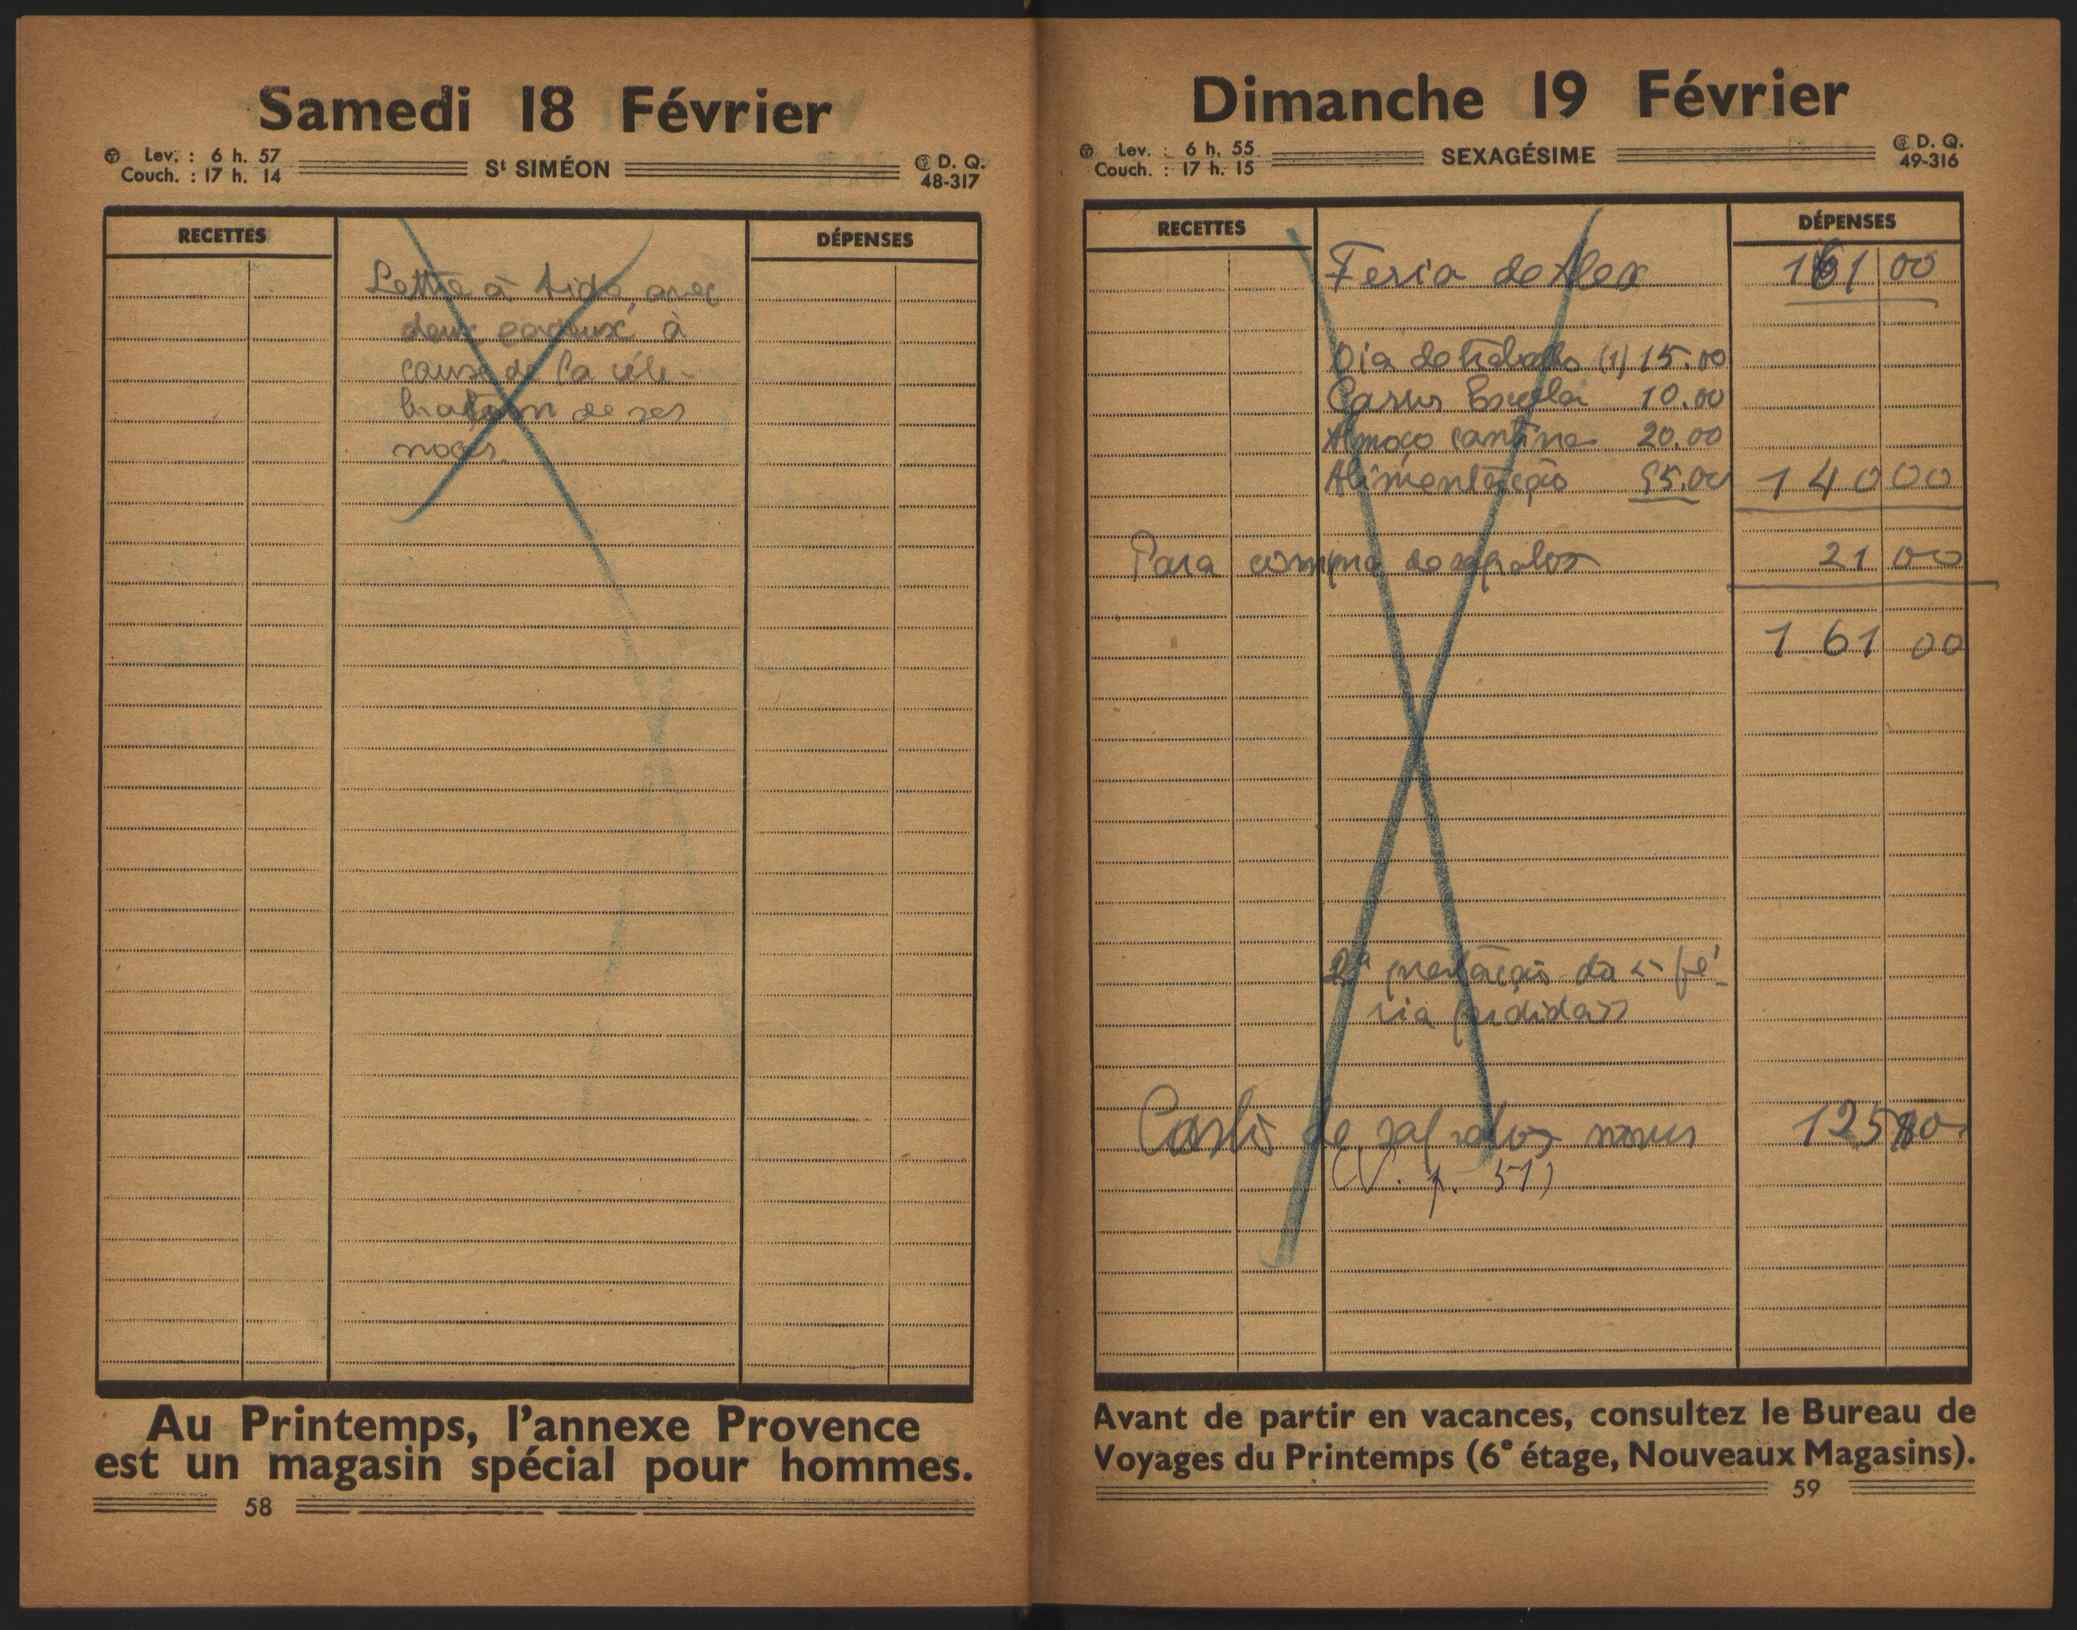 Samedi 18 Février
Lev. : 6 h. 57
Couch. : 17 h. 14
St SIMÉON
D. Q.
48-317
RECETTES
DÉPENSES
Lettre à Aida, avec
deux cadeaux à
cause de la célé-
bration de ses
noces.
Au Printemps, l'annexe Provence
est un magasin spécial pour hommes.
58
Dimanche 19 Février
Lev. : 6 h. 55
Couch. : 17 h. 15
SEXAGÉSIME
D. Q.
49-316
RECETTES
DÉPENSES
Feria do Alex 161 00
Dia de trabalho (1) 15.00
Escola 10.00
Almoço cantine 20.00
Alimentação 95.00 140 00
Para compra de sapatos 21 00
161 00
2ª prestação da fé-
ria
Custo de sapatos novos 125
(V. p. 51)
Avant de partir en vacances, consultez le Bureau de
Voyages du Printemps (6e étage, Nouveaux Magasins).
59